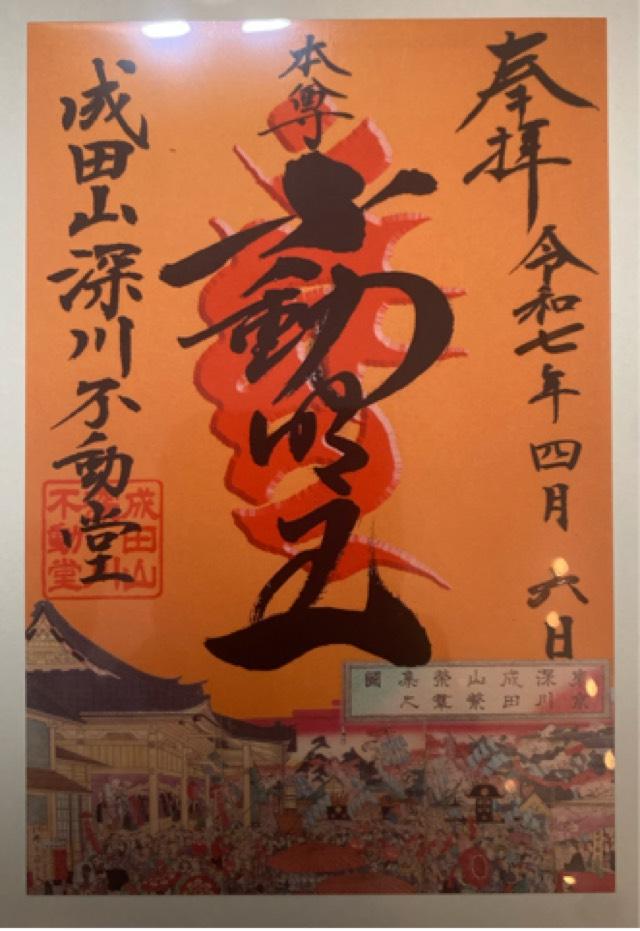 奉拝
令和七年四月六日
本尊
不動明王
成田山深川不動堂
成田山
深川
不動堂
東京深川成田山繁榮羣集大圖